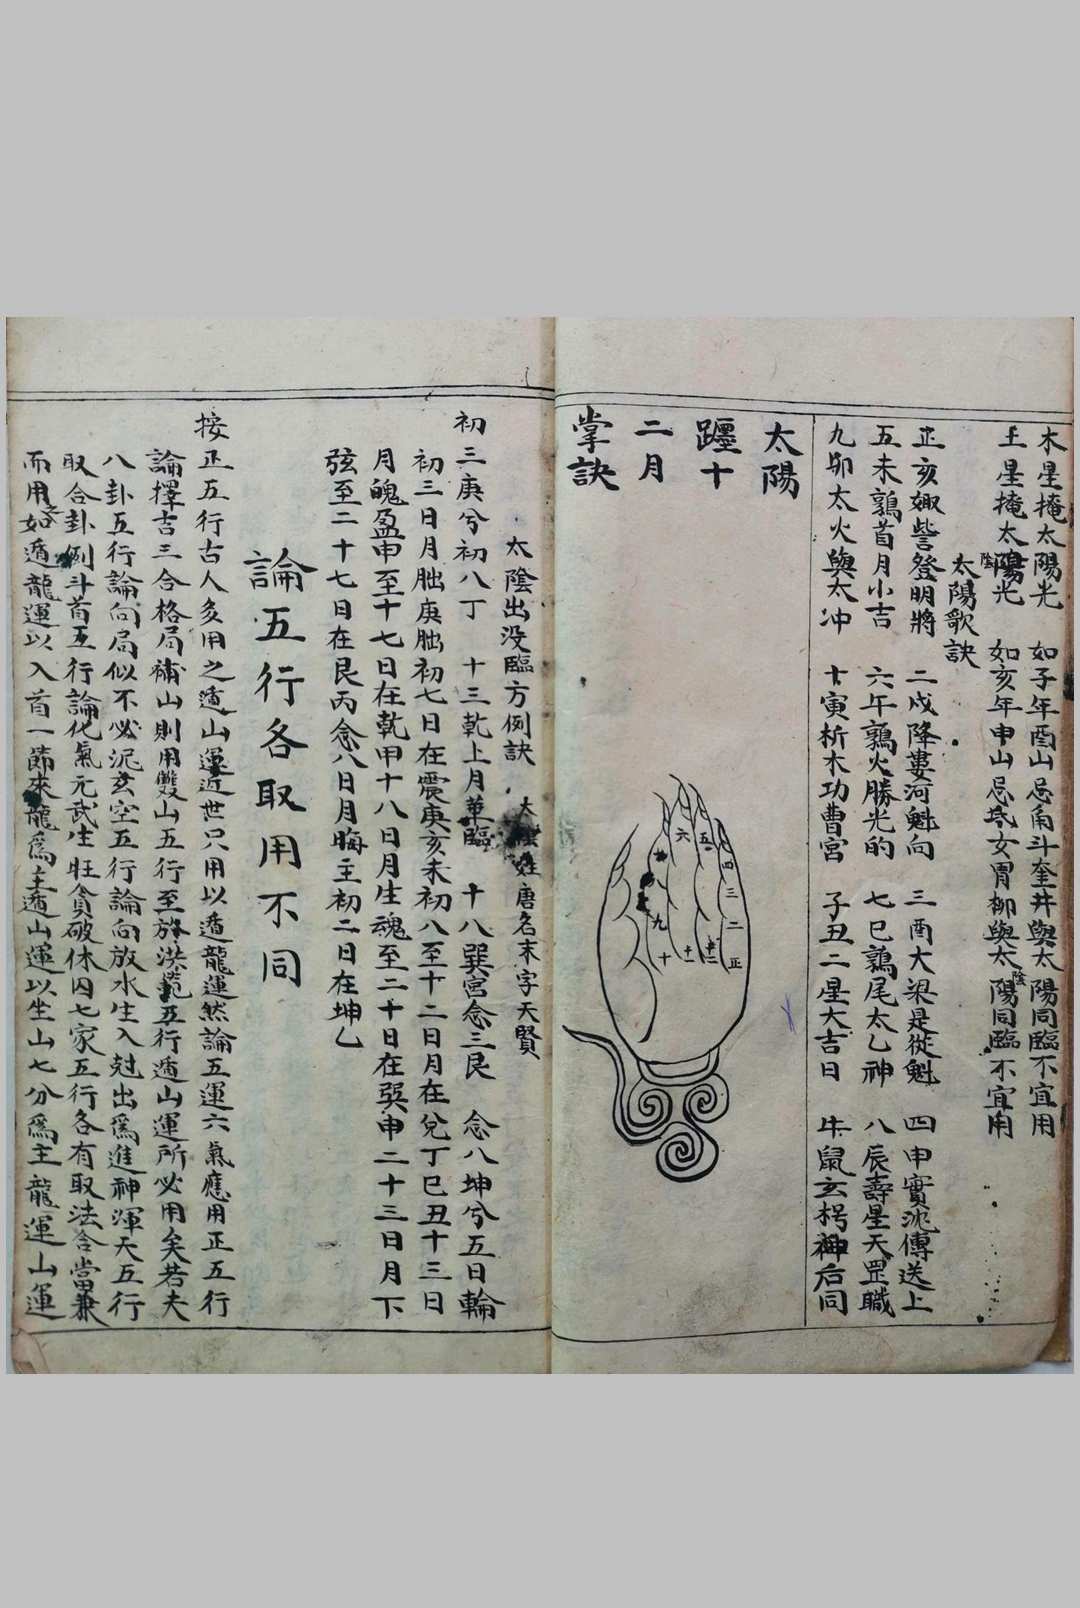 木星掩太陽光　如子年酉山忌角斗奎井與太陽同臨不宜用
土星掩太陽光　如亥年申山忌氐女胃柳與太陽同臨不宜用
陰
陰
太陽歌訣
正亥娵訾登明將　二戍降婁河魁向　三酉大梁是從魁　四申實沈傳送上
五未鶉首月小吉　六午鶉火勝光的　七巳鶉尾太乙神　八辰壽星天罡職
九卯太火與太冲　十寅析木功曹宮　子丑二星大吉日　牛鼠玄枵神后同
太陽
躔十
二月
掌訣
正
二
三
四
五
六
九
十
十一
太陰出没臨方例訣　太陰姓唐名末字天賢
初三庚兮初八丁　十三乾上月華臨　十八巽宮念三艮　念八坤兮五日輪
初三日月朏庚朏初七日在震庚亥未初八至十二日月在兌丁巳丑十三日
月魄盈申至十七日在乾甲十八日月生魂至二十日在巽申二十三日月下
弦至二十七日在艮丙念八日月晦主初二日在坤乙
論五行各取用不同
按正五行古人多用之遁山運近世只用以遁龍運然論五運六氣應用正五行
論擇吉三合格局補山則用雙山五行至於洪範五行遁山運所必用矣若夫
八卦五行論向局似不必泥玄空五行論向放水生入尅出爲進神渾天五行
取合卦例斗首五行論化氣元武生旺貪破休囚七家五行各有取法合當兼
而用如遁龍運以入首一節來龍爲主遁山運以坐山七分爲主龍運山運